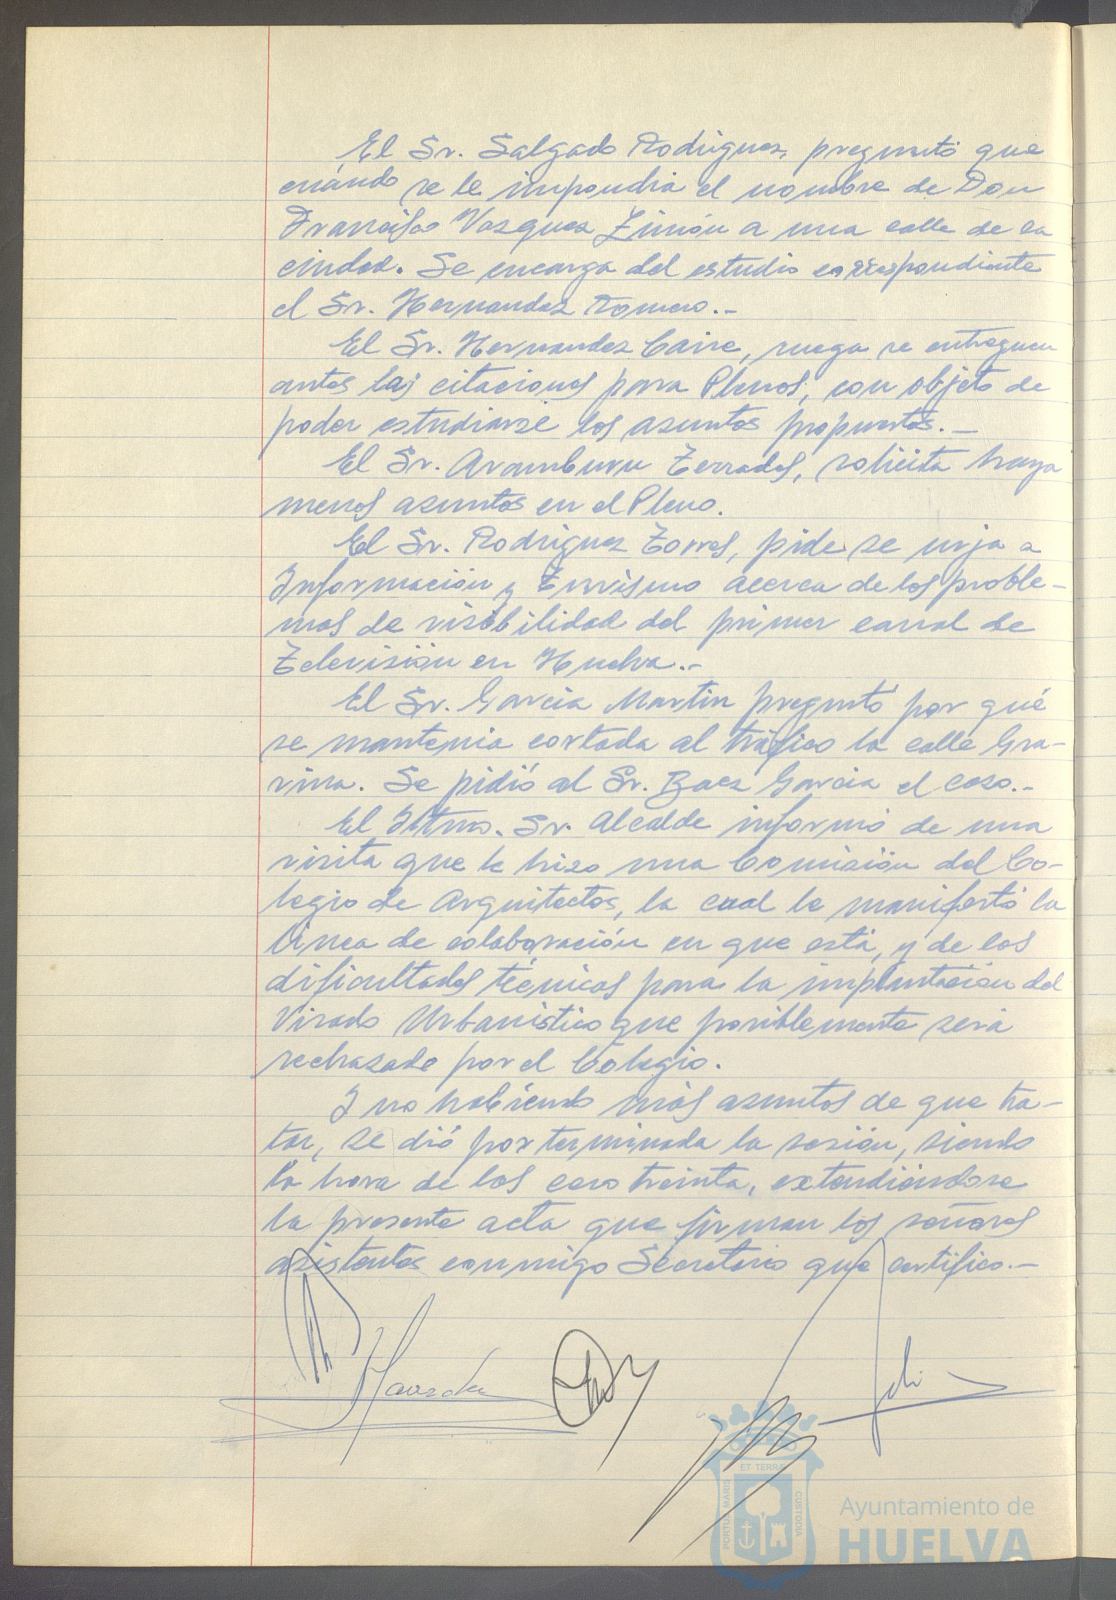 El Sr. Salgado Rodríguez, preguntó que
cuándo se le impondria el nombre de Don
Francisco Vazquez Limón a una calle de la
ciudad. Se encarga del estudio correspondiente
el Sr. Hernandez Romero.-
El Sr. Hernandez Caire, ruega se entreguen
antes las citaciones para Plenos, con objeto de
poder estudiarse los asuntos propuestos.-
El Sr. Aramburu Terrades, solicita haya
menos asuntos en el Pleno.
El Sr. Rodríguez Torres, pide se urja a
Información y Turismo acerca de los proble-
mas de visibilidad del primer canal de
Televisión en Huelva.-
El Sr. Garcia Martin preguntó por qué
se mantenia cortada al tráfico la calle Gra-
vina. Se pidió al Sr. Baez Garcia el caso.-
El Iltmo. Sr. Alcalde informó de una
visita que le hizo una Comisión del Co-
legio de Arquitectos, la cual le manifestó la
linea de colaboración en que está, y de las
dificultades técnicas para la implantación del
Visado Urbanistico que posiblemente será
rechazado por el Colegio.
Y no habiendo más asuntos de que tra-
tar, se dió por terminada la sesión, siendo
la hora de las cero treinta, extendiéndose
la presente acta que firman los señores
asistentes conmigo Secretario que certifico.-
PORTUS MARIS
ET TERRAE
CUSTODIA
Ayuntamiento de
HUELVA